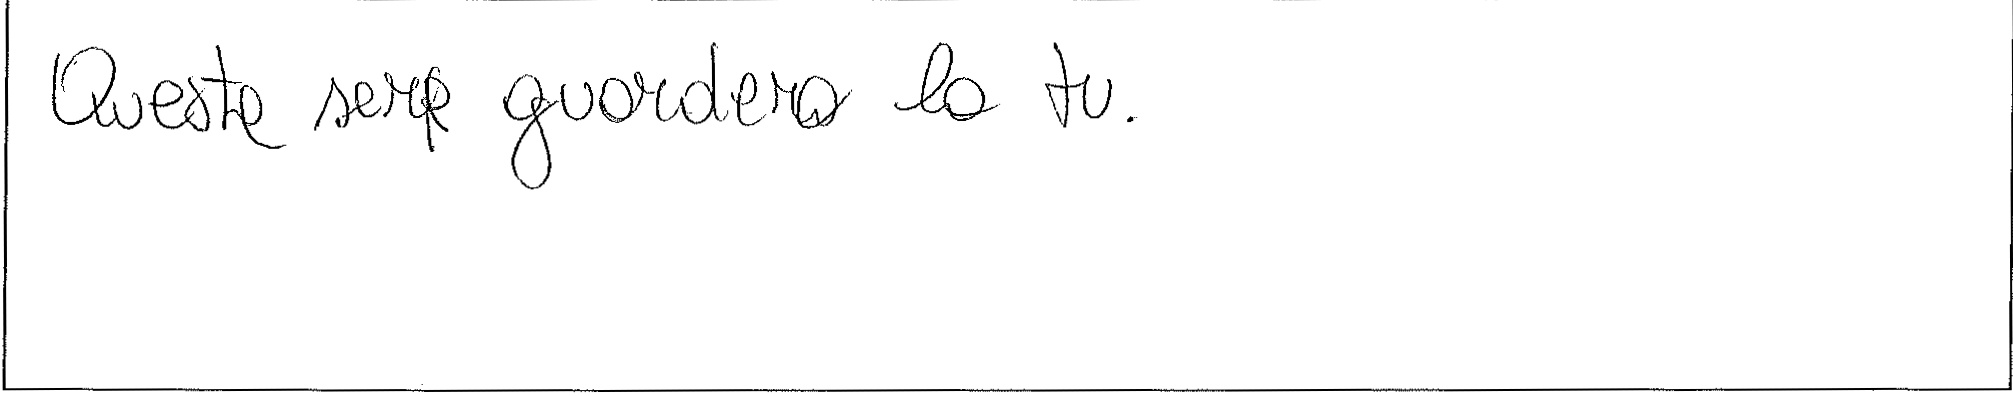 Questa sera guardera la tv.